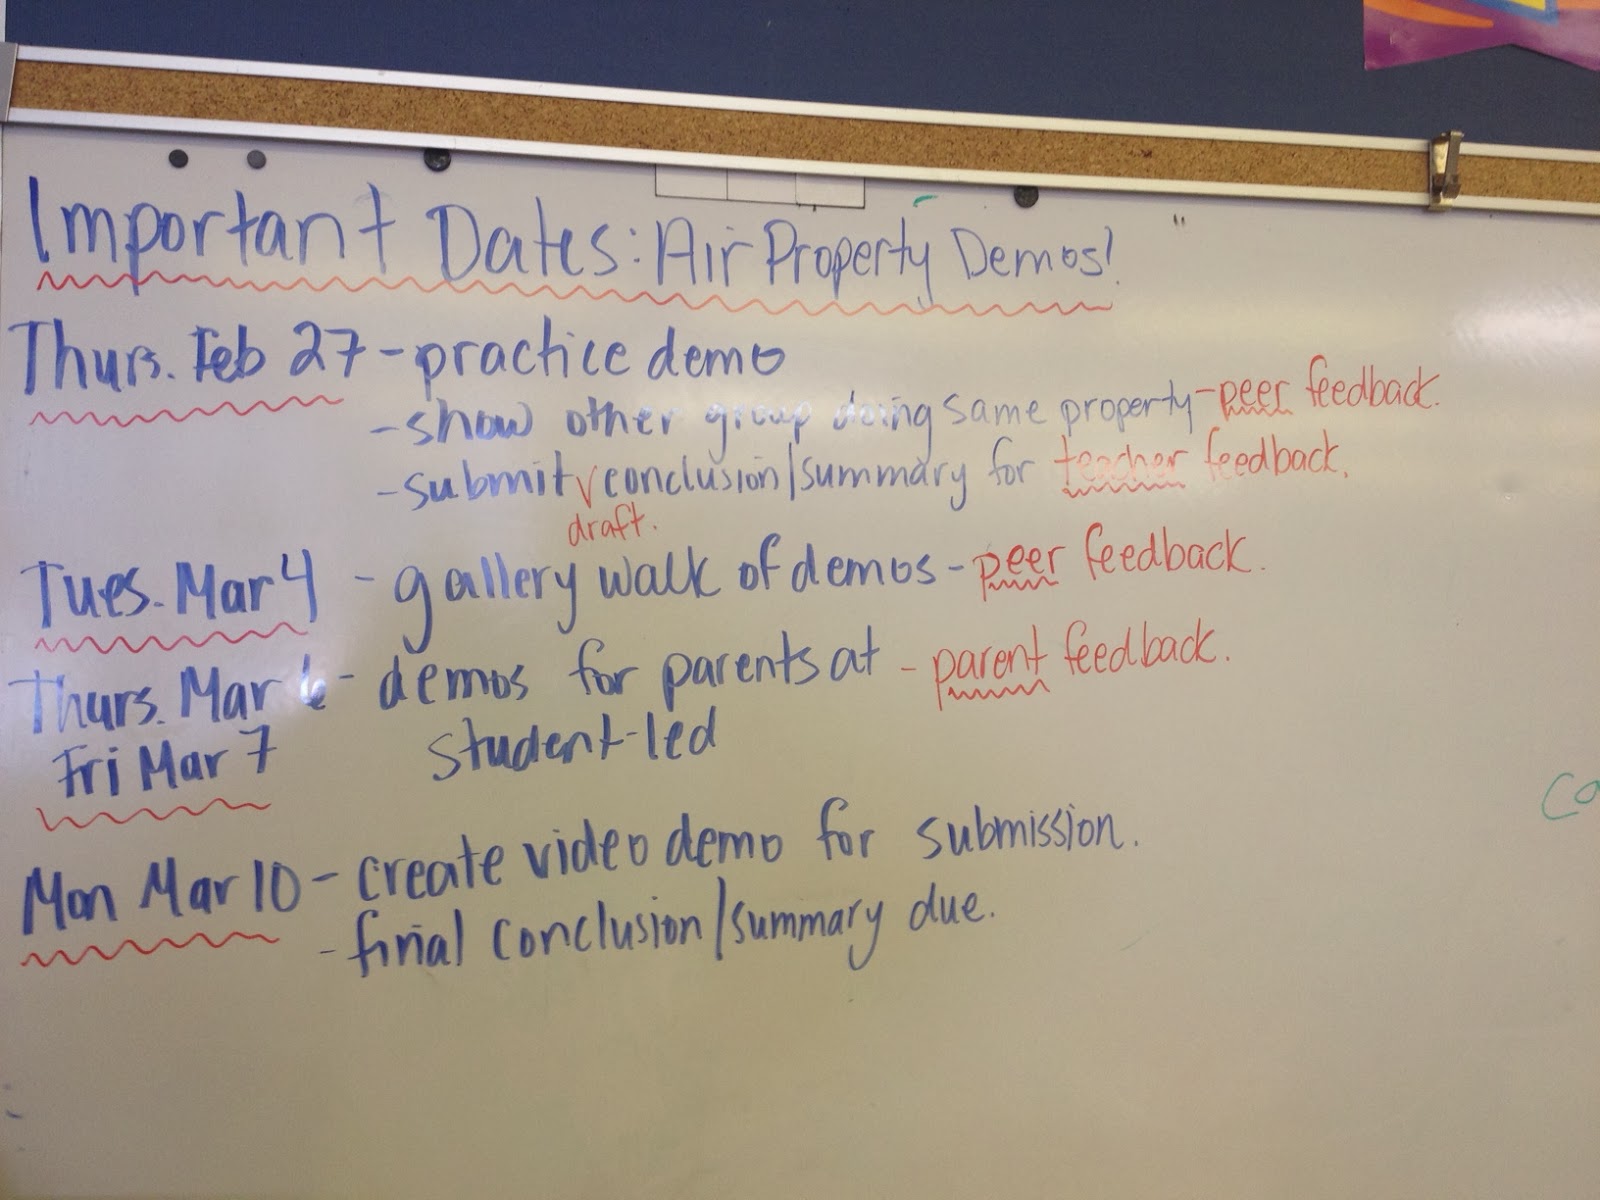 Important Dates: Air Property Demos!
Thurs. Feb 27 - practice demo
- show other group doing same property - peer feedback.
- submit √ conclusion/summary for teacher feedback.
draft.
Tues. Mar 4 - gallery walk of demos - peer feedback.
Thurs. Mar 6 - demos for parents at - parent feedback.
Fri Mar 7 student-led
Mon Mar 10 - create video demo for submission.
- final conclusion/summary due.
Co